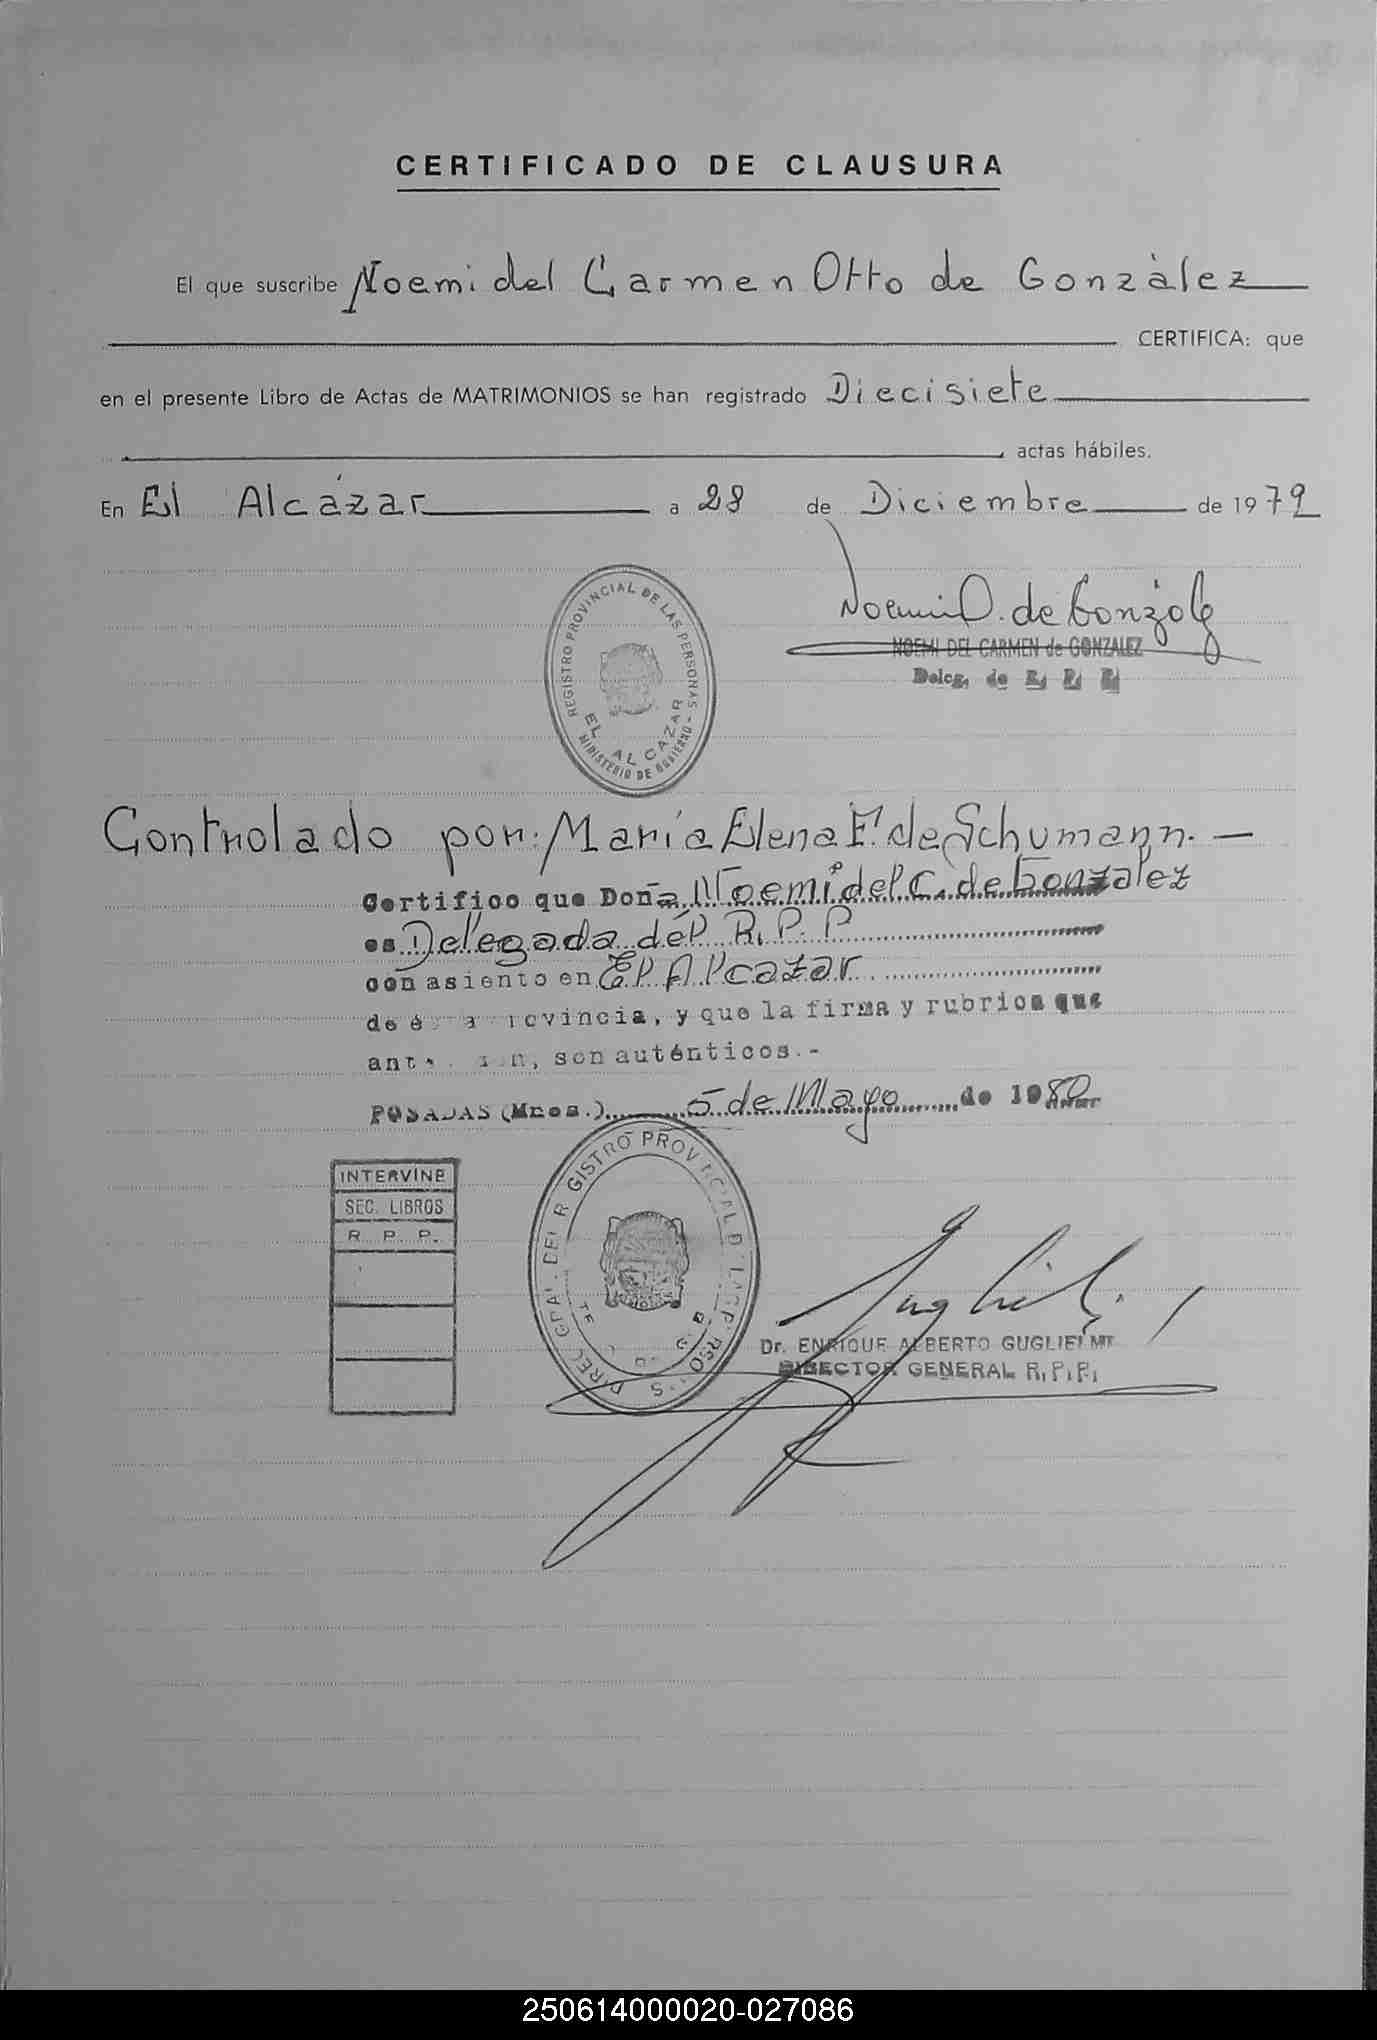 CERTIFICADO DE CLAUSURA
El que suscribe Noemi del Carmen Otto de Gonzàlez
CERTIFICA: que
en el presente Libro de Actas de MATRIMONIOS se han registrado Diecisiete
actas hábiles.
En El Alcázar a 28 de Diciembre de 1979
REGISTRO PROVINCIAL DE LAS PERSONAS
EL ALCAZAR
MINISTERIO DE GOBIERNO
Noemi O. de Gonzalez
NOEMI DEL CARMEN de GONZALEZ
Deleg. de R. P. P.
Controlado por: María Elena F. de Schumann. —
Certifico que Doña Noemi del C. de Gonzalez
es Delegada del R. P. P
con asiento en El Alcazar
de provincia, y que la firma y rubrica que
son auténticos.-
POSADAS (Mnes.) 5 de Mayo de 1980
INTERVINE
SEC. LIBROS
R. P. P.
Dr. ENRIQUE ALBERTO GUGLIELMI
DIRECTOR GENERAL R. P. P.
250614000020-027086